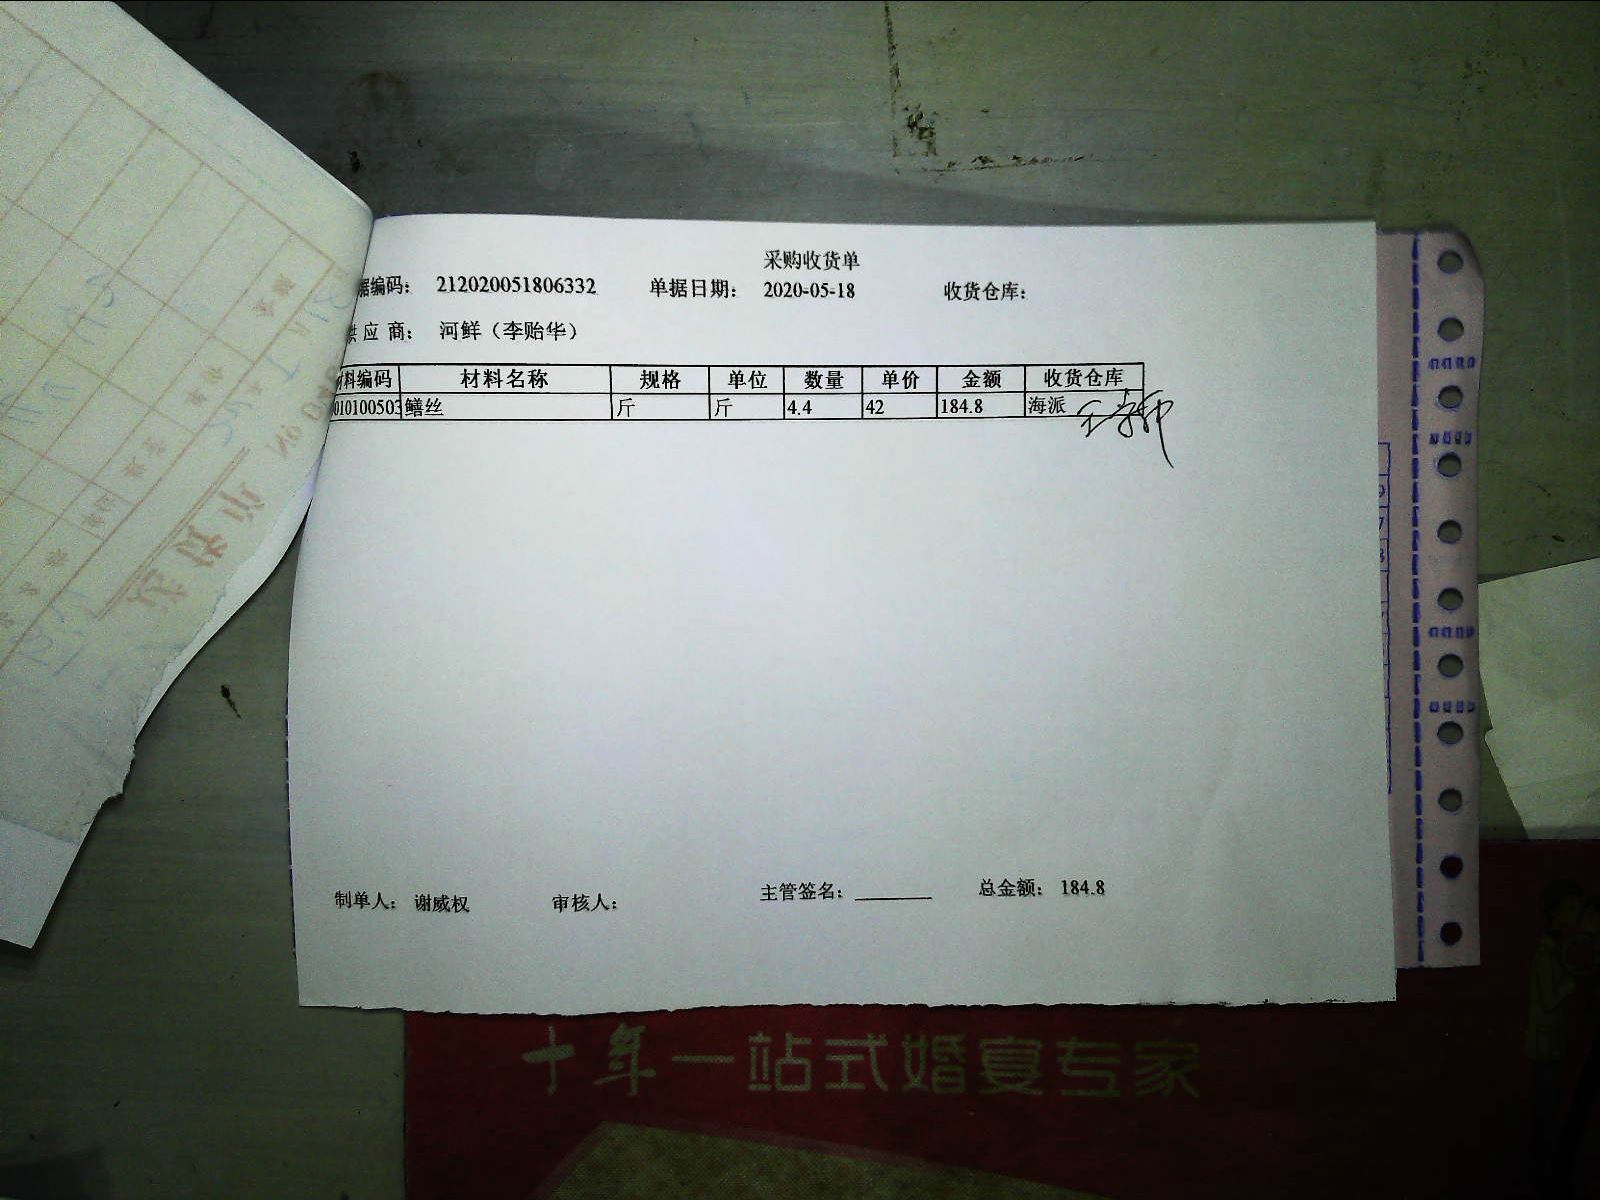 采购收货单
据编码： 212020051806332 单据日期： 2020-05-18 收货仓库：
供 应 商： 河鲜（李贻华）
材料编码 材料名称 规格 单位 数量 单价 金额 收货仓库
010100503 鳝丝 斤 斤 4.4 42 184.8 海派
制单人： 谢威权 审核人： 主管签名： 总金额： 184.8
十年一站式婚宴专家